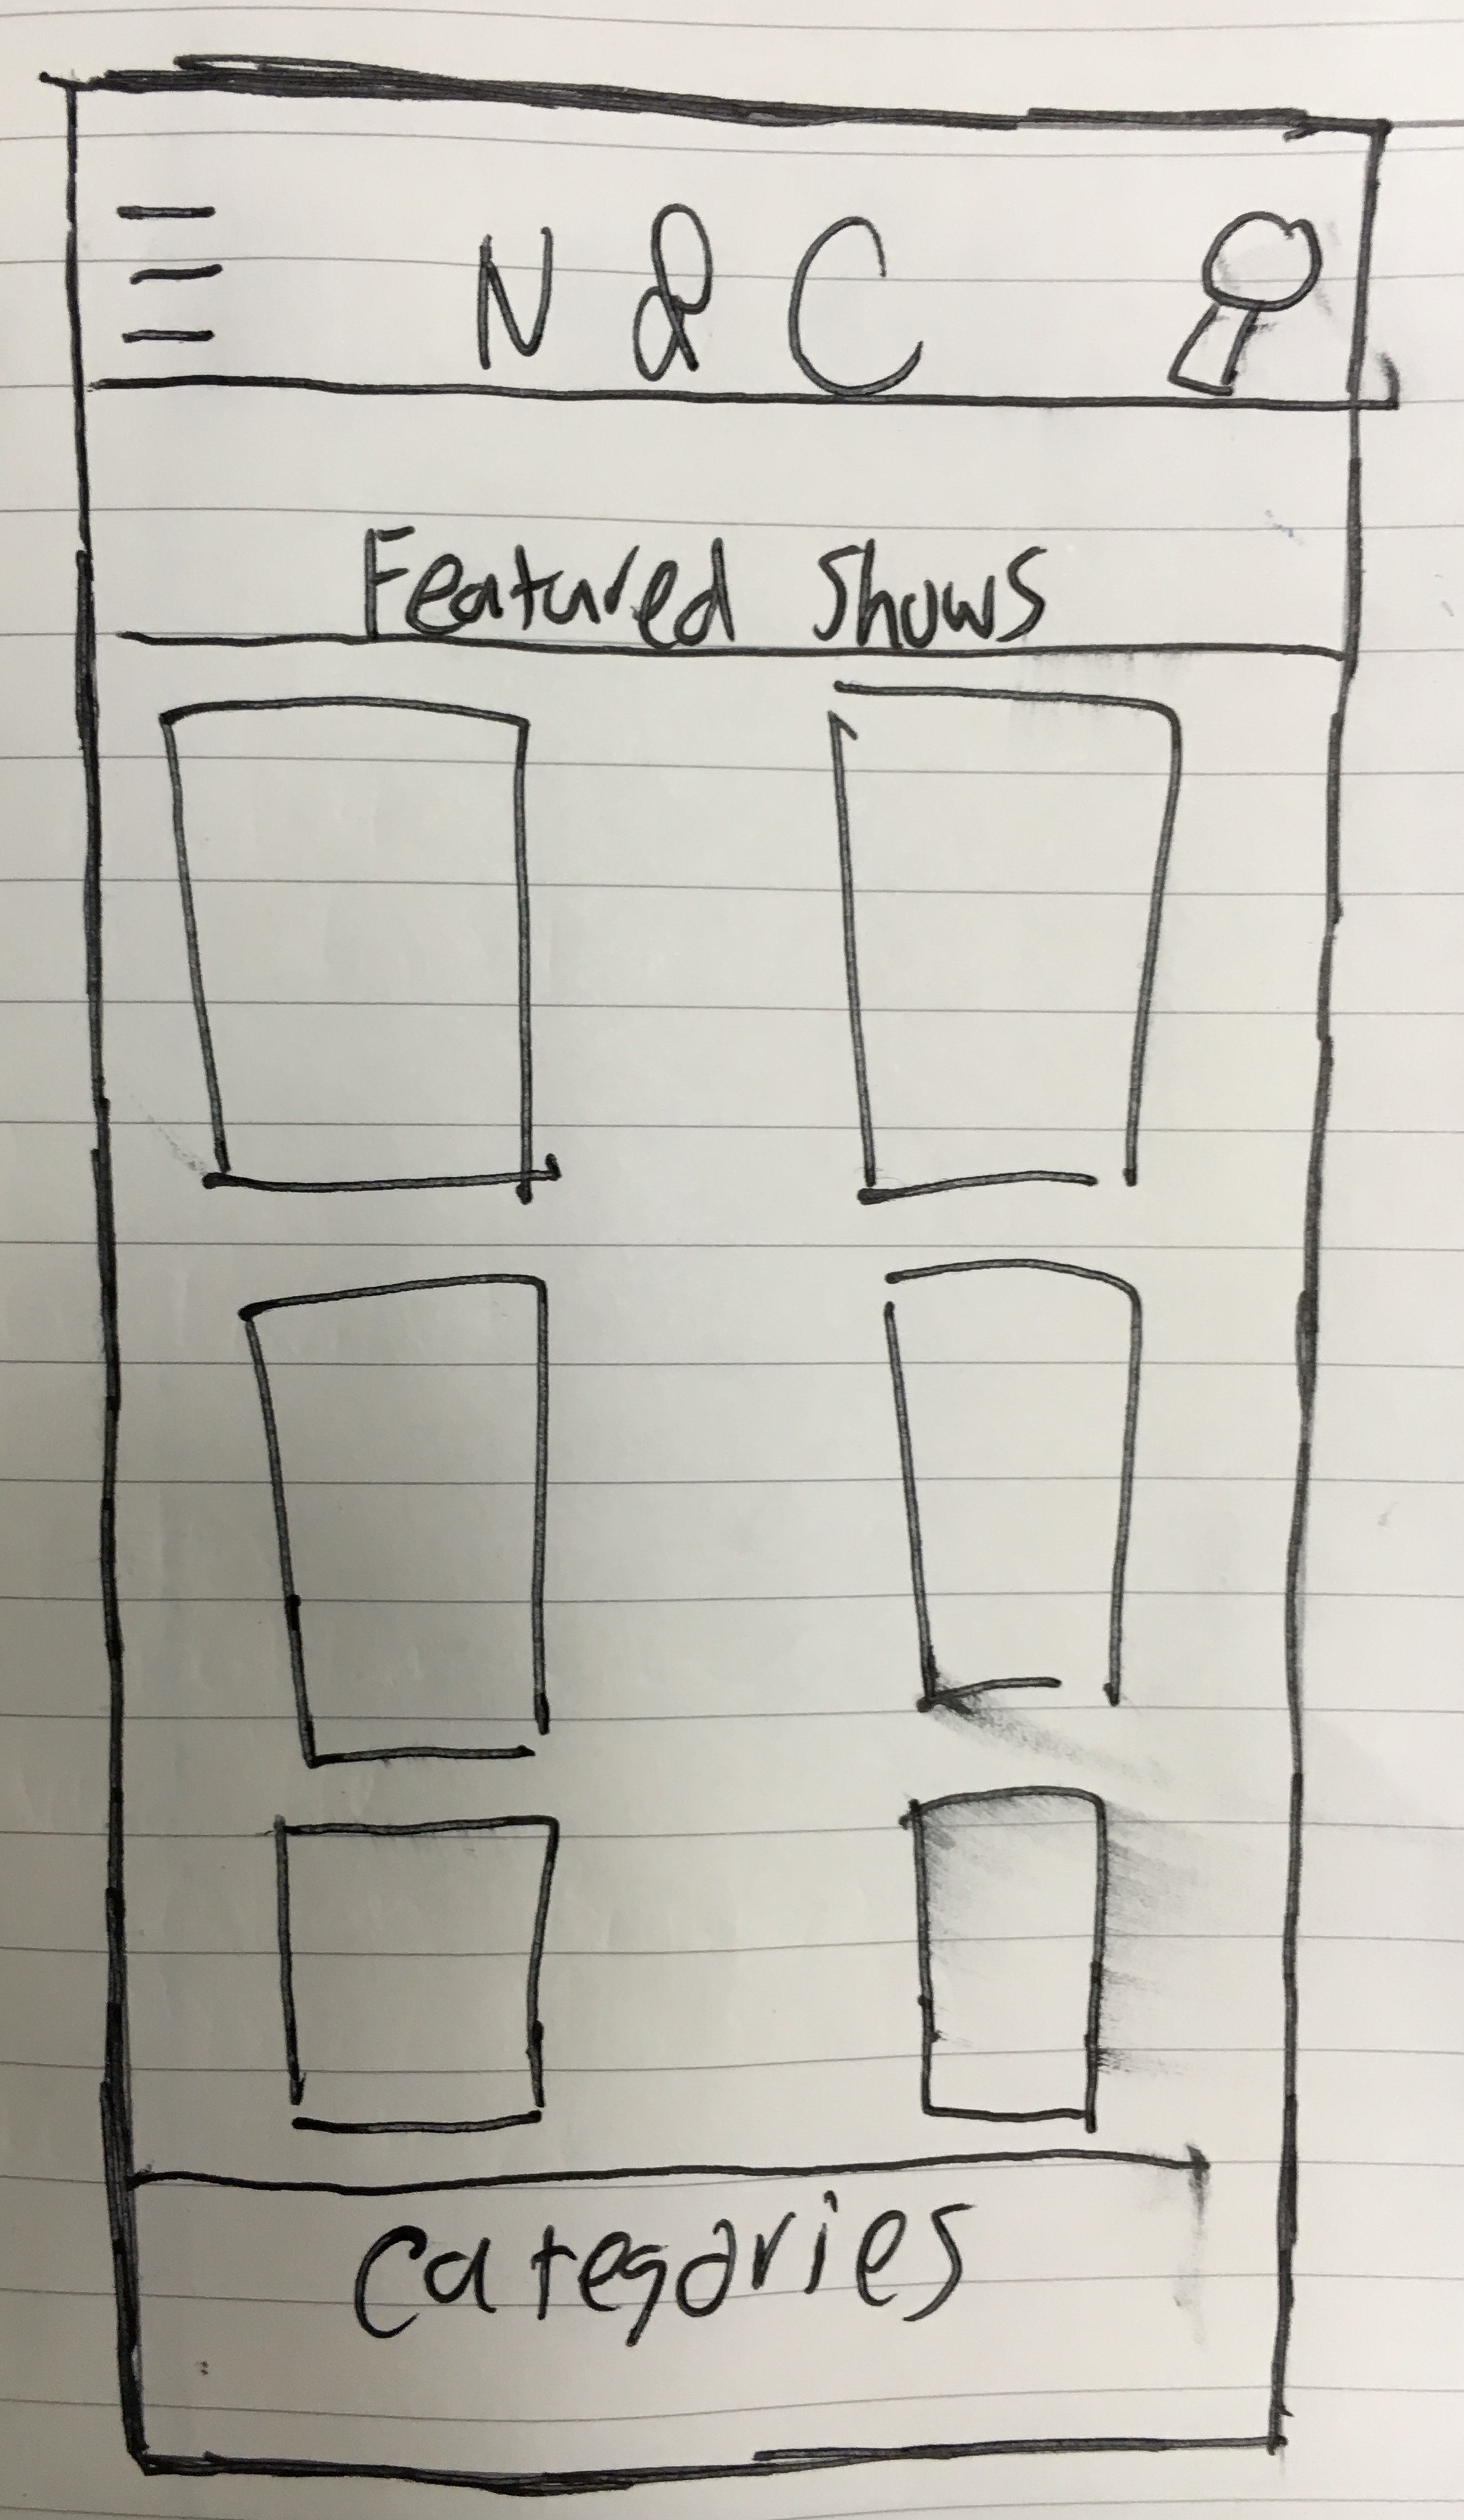 N & C
Featured Shows
Categories